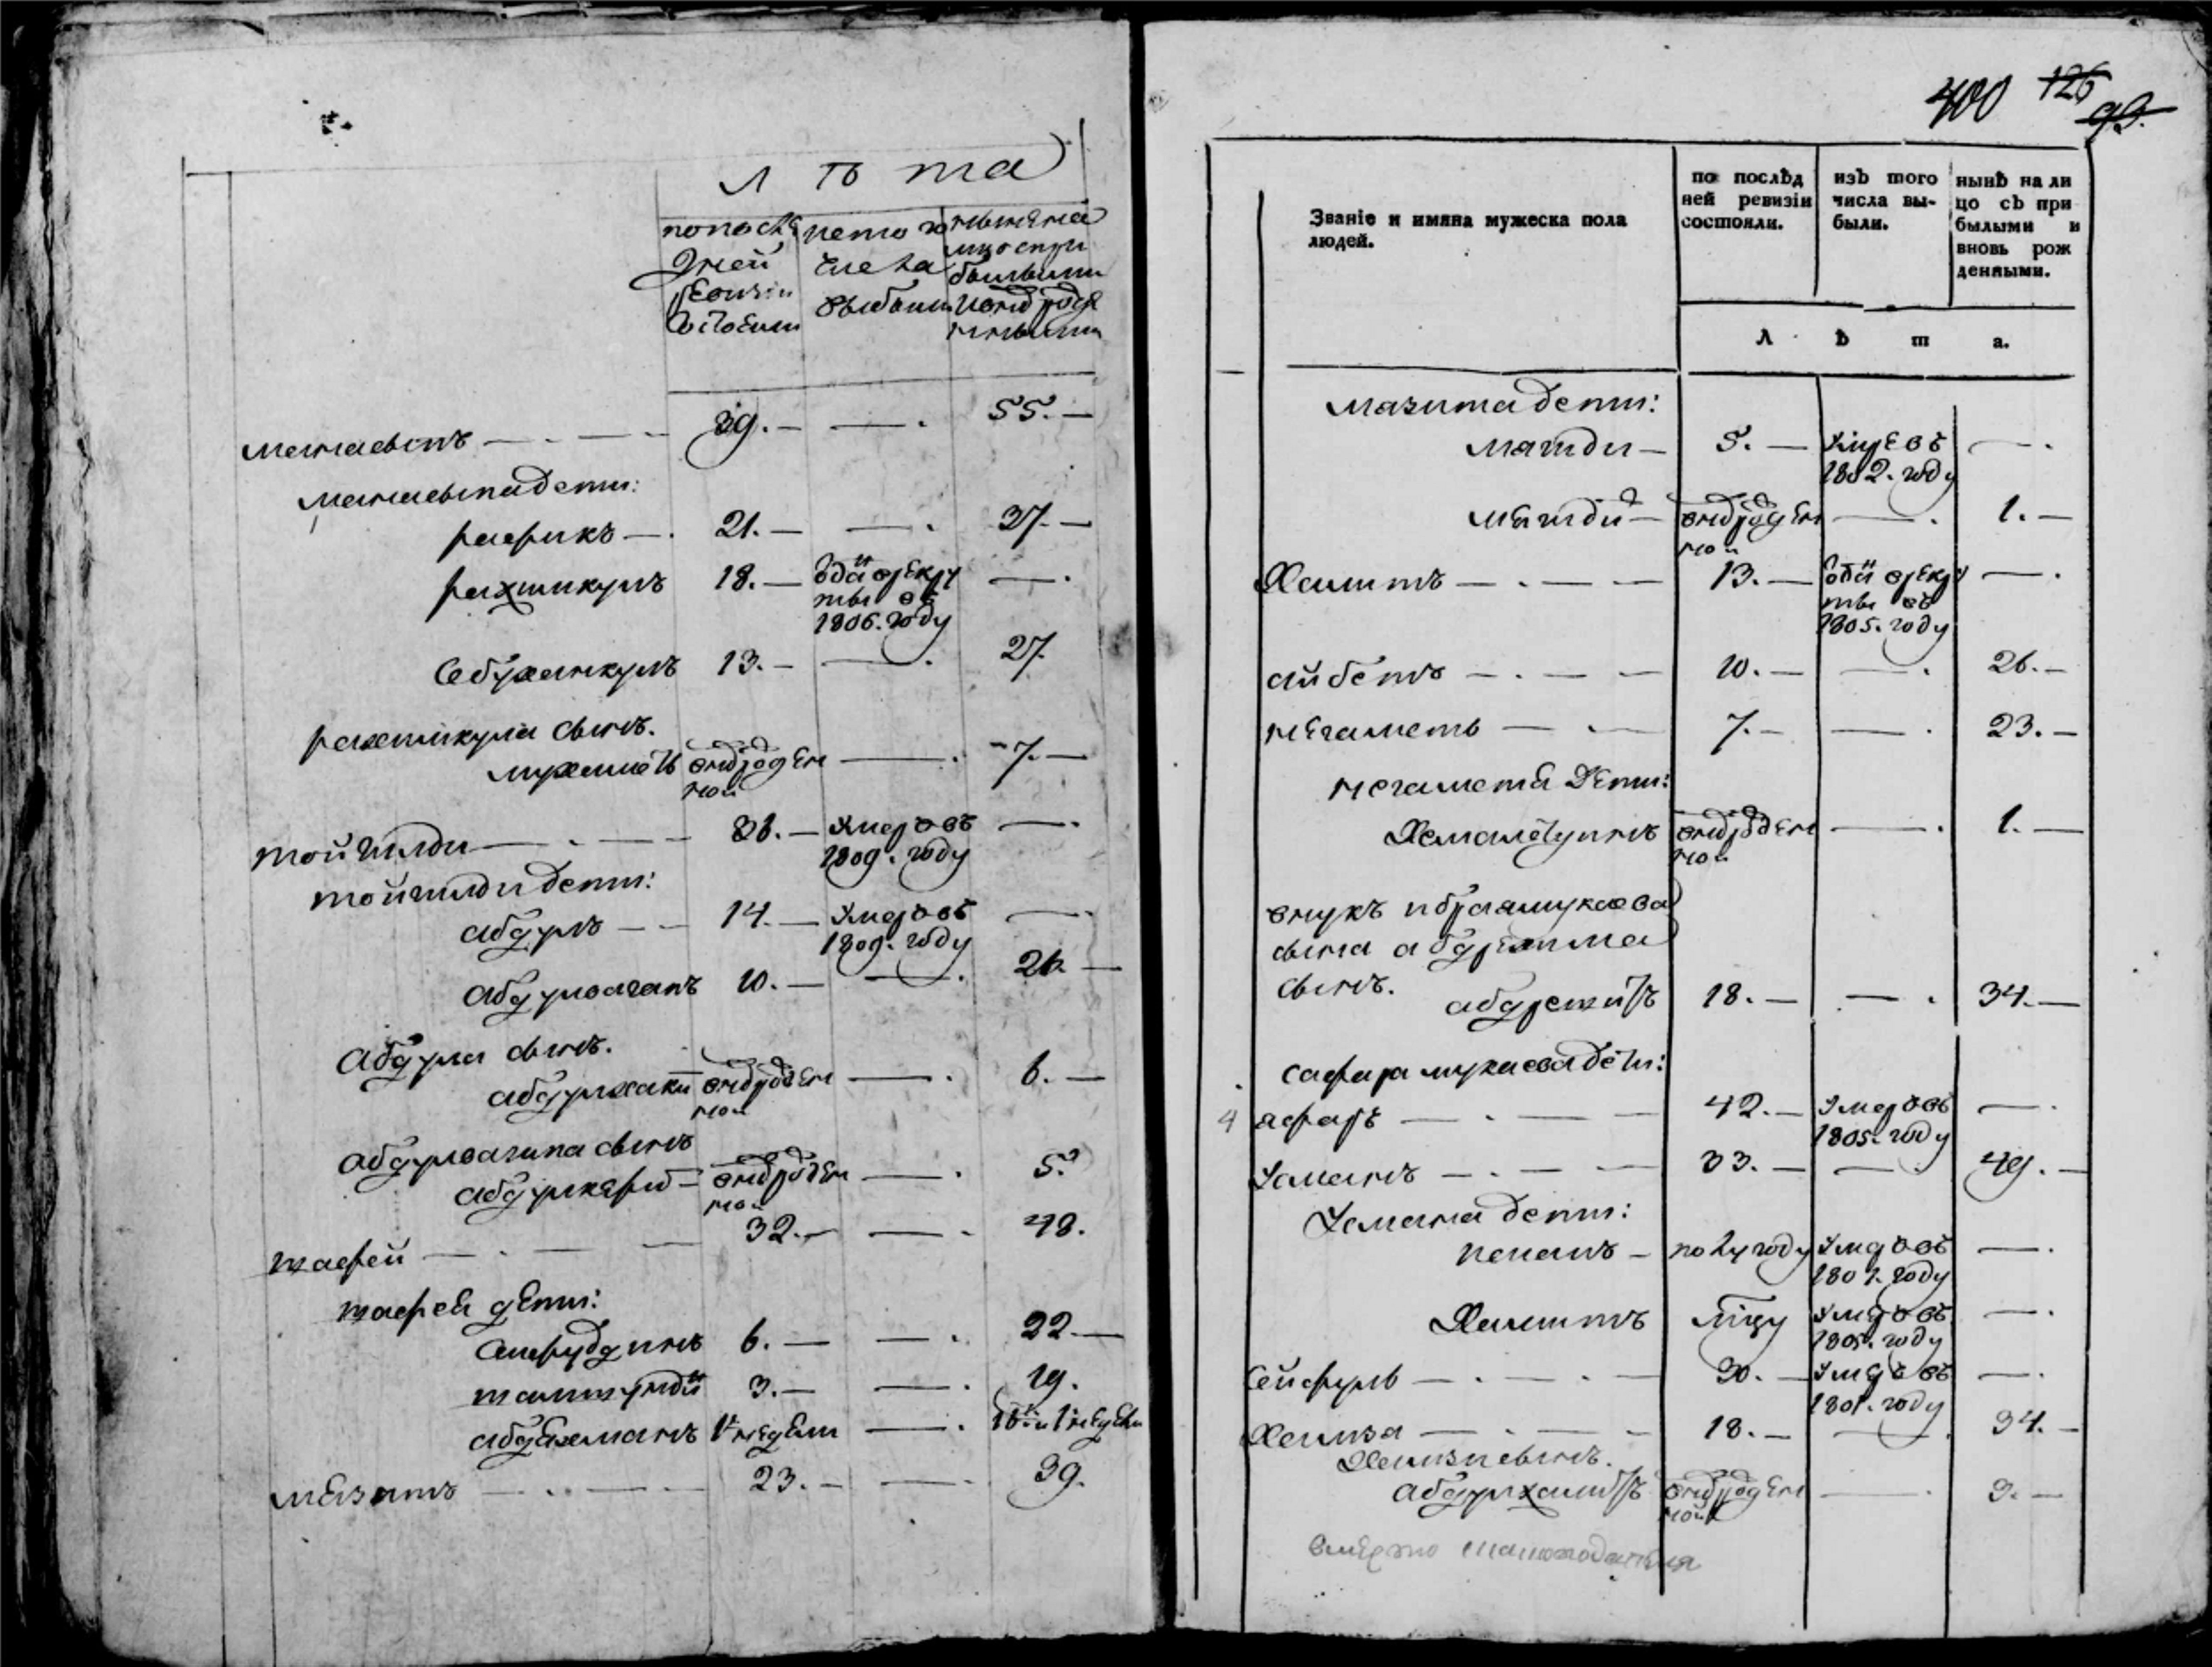 Л ѣ та
по послѣ
дней
ревизіи
состояли
ис того
числа
выбыли
ныне на
лицо с при
былыми
и внов рожде
нными
39. — — . 55. —
Маметевы дети:
рафикъ — . 21. — — . 37. —
рахмикулъ 18. — одан в рекру — .
ты въ
1806. году
13. — — . 27.
рахмикула сынъ.
мухаметь внов рожден — . 7. —
ной
тойгилди — . — — 36. — умер въ — .
1809. году
тойгилди дети:
абдулъ — — 14. — умер въ — .
1809. году
абдулвагапъ 10. — — . 26. —
Абдула сынъ.
абдулхаки внов рожден — . 6. —
ной
абдулвагапа сынъ
абдулкерим — внов рожден — . 5.
ной
тафеи — . — — 32. — — . 48.
тафея дети:
6. — — . 22 —
3. — — . 19.
1 недели — . 16 и 1 недели
мазитъ — . . — . — 23. — — . 39.
400 126 93.
Званіе и имяна мужеска пола
людей.
по послѣд
ней ревизіи
состояли.
изъ того
числа вы-
были.
нынѣ на ли
цо съ при
былыми и
вновь рож
денными.
Л ѣ т а.
мазита дети:
магди — 5. — умре въ — .
1802. году
магди — внов рожден — . 1. —
ной
Халитъ — . — — 13. — одан в рекру — .
ты въ
1805. году
аибетъ — . — — 10. — — . 26. —
негаметь — . — 7. — — . 23. —
негаметя дети:
Хемалетдинъ внов рожден — . 1. —
ной
внукъ ибраимукаева
сына абдрахима
сынъ.
абдрешитъ 18. — — . 34. —
сафара мукаева дети:
4 яфаръ — . — — 42. — умер въ — .
1805. году
Усманъ — . — — 33. — — . 49. —
Усмана дети:
— полу году умер въ — .
1801. году
Халитъ умер въ — .
1805. году
Сейфулъ — . — . — 30. — умер въ — .
1801. году
Хамза — . — . — 18. — — . 34. —
Хамзы сынъ.
абдулхалитъ внов рожден — . 3. —
ной